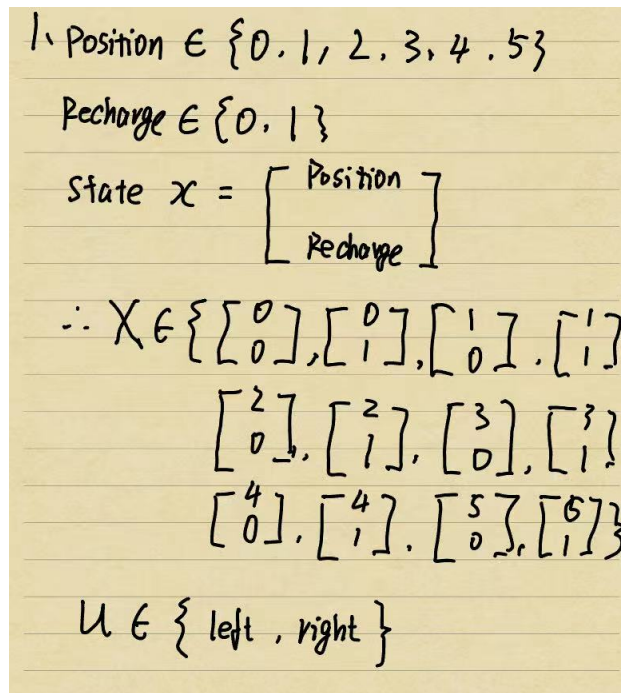 1、Position ∈ {0. 1, 2. 3. 4. 5}
Recharge ∈ {0. 1}
State x = [Position
Recharge]
∴ X ∈ {[0 0], [0 1], [1 0]. [1 1]
[2 0], [2 1], [3 0], [3 1].
[4 0]. [4 1]. [5 0], [5 1]}
U ∈ { left , right }